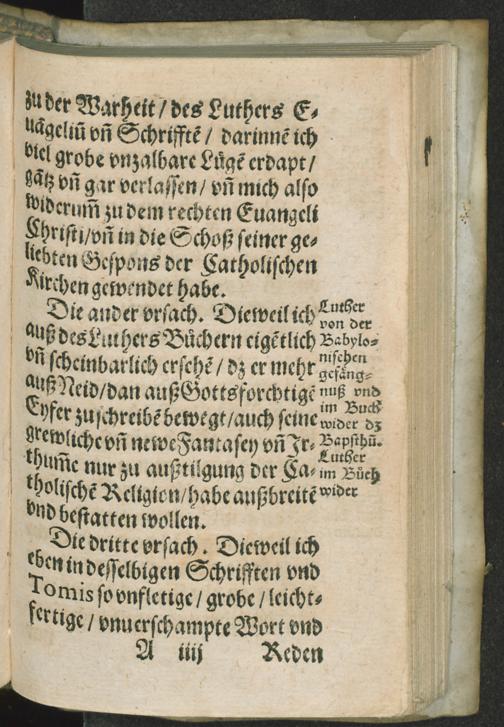 zu der Warheit / des Luthers E-
uāgeliū vñ Schrifftē / darinnē ich
viel grobe vnzalbare Lügē erdapt /
gātz vñ gar verlassen / vñ mich also
widerum̄ zu dem rechten Euangeli
Christi / vñ in die Schoß seiner ge-
liebten Gespons der Catholischen
Kirchen gewendet habe.
Die ander vrsach. Dieweil ich
auß des Luthers Büchern eigētlich
vñ scheinbarlich ersehē / dz er mehr
auß Neid / dan auß Gottsforchtigē
Eyfer zu schreibē bewegt / auch seine
grewliche vñ newe Fantasey vñ Jr-
thum̄e nur zu außtilgung der Ca-
tholischē Religion / habe außbreitē
vnd bestatten wollen.
Luther
von der
Babylo-
nischen
gefäng-
nuß vnd
im Buch
wider dz
Bapsthū.
Luther
im Büch
wider
Die dritte vrsach. Dieweil ich
eben in desselbigen Schrifften vnd
Tomis so vnfletige / grobe / leicht-
fertige / vnuerschampte Wort vnd
A iiij Reden